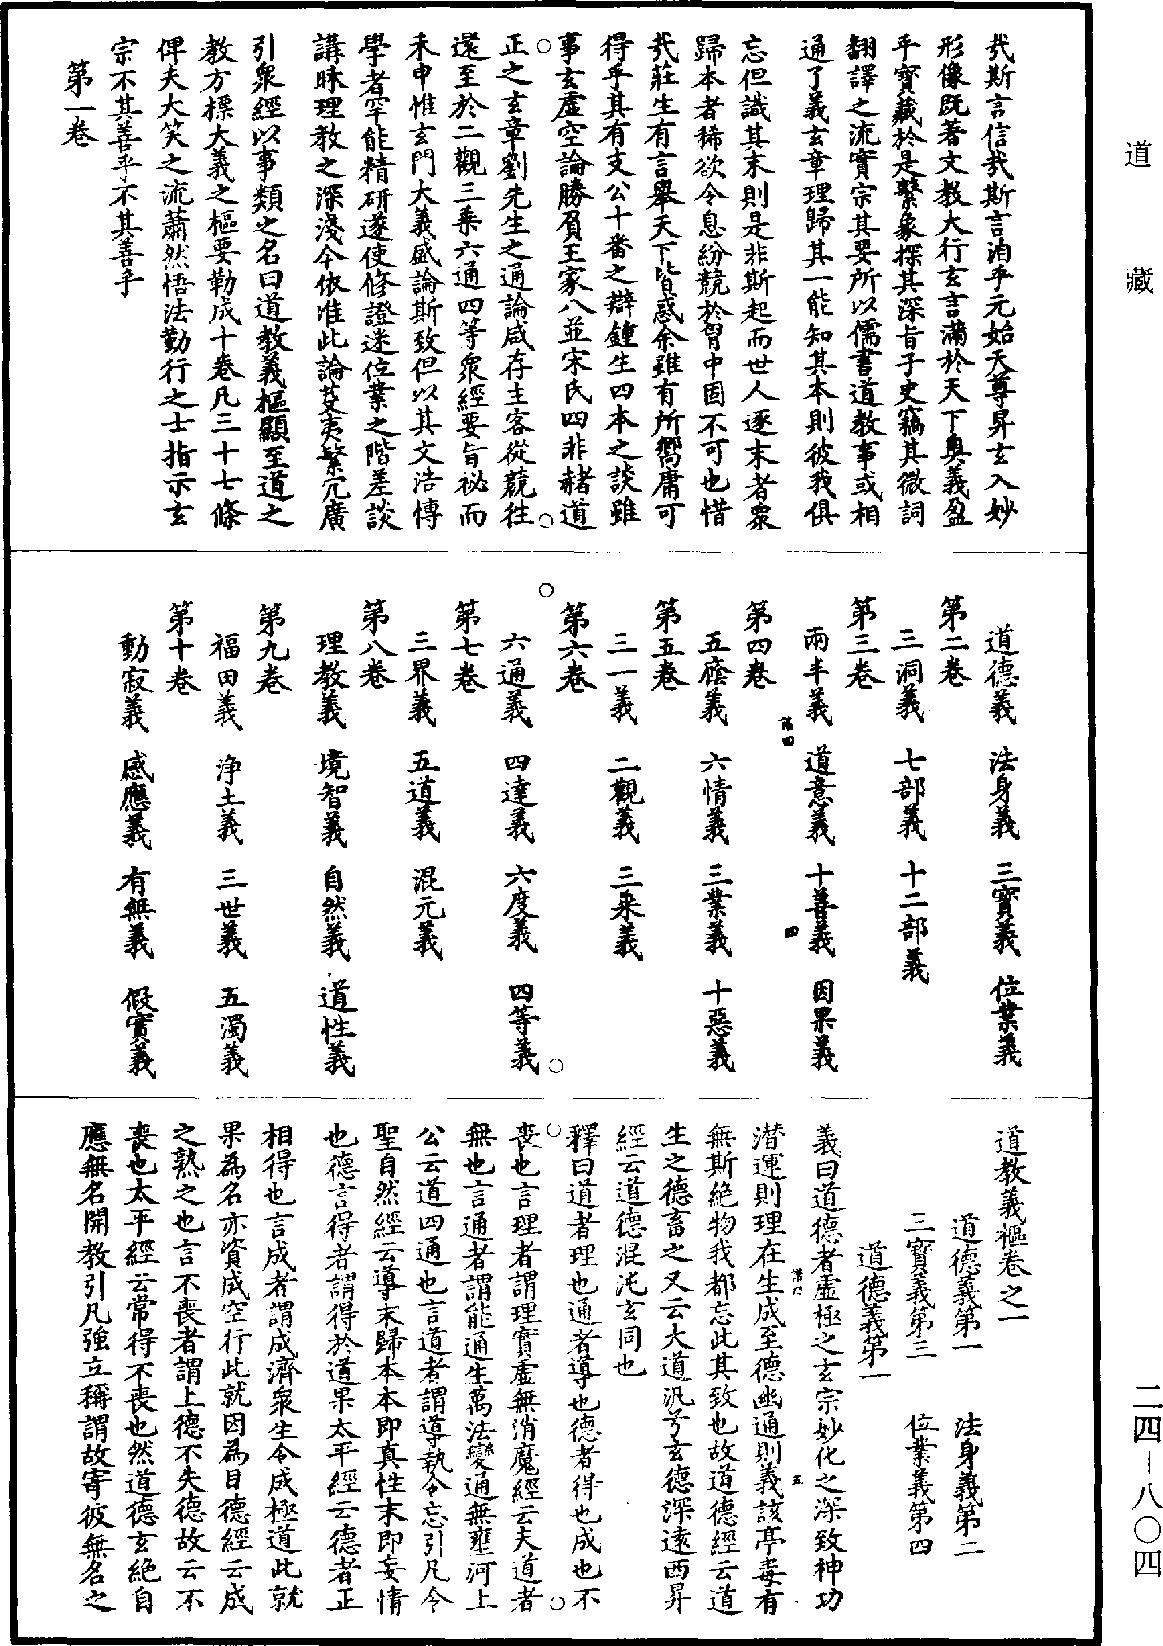 道藏
二四－八〇四
哉斯言信哉斯言洎乎元始天尊昇玄入妙
形像既著文教大行玄言滿於天下奧義盈
乎寶藏於是繫象探其深旨子史竊其微詞
翻譯之流實宗其要所以儒書道教事或相
通了義玄章理歸其一能知其本則彼我俱
忘但識其末則是非斯起而世人逐末者眾
歸本者稀欲令息紛競於胷中固不可也惜
哉莊生有言舉天下皆惑余雖有所嚮庸可
得乎其有支公十番之辯鍾生四本之談雖
事玄虛空論勝負王家八並宋氏四非赭道
正之玄章劉先生之通論咸存主客從競往
還至於二觀三乘六通四等眾經要旨祕而
未申惟玄門大義盛論斯致但以其文浩博
學者罕能精研遂使修證迷位業之階差談
講昧理教之深淺今依准此論芟夷繁冗廣
引眾經以事類之名曰道教義樞顯至道之
教方標大義之樞要勒成十卷凡三十七條
俾夫大笑之流蕭然悟法勤行之士指示玄
宗不其善乎不其善乎
第一卷
道德義　法身義　三寶義　位業義
第二卷
三洞義　七部義　十二部義
第三卷
兩半義　道意義　十善義　因果義
第四卷
五廕義　六情義　三業義　十惡義
第五卷
三一義　二觀義　三乘義
第六卷
六通義　四達義　六度義　四等義
第七卷
三界義　五道義　混元義
第八卷
理教義　境智義　自然義　道性義
第九卷
福田義　淨土義　三世義　五濁義
第十卷
動寂義　感應義　有無義　假實義
道教義樞卷之一
道德義第一　法身義第二
三寶義第三　位業義第四
道德義第一
義曰道德者虛極之玄宗妙化之深致神功
潛運則理在生成至德幽通則義該亭毒有
無斯絕物我都忘此其致也故道德經云道
生之德畜之又云大道汎兮玄德深遠西昇
經云道德混沌玄同也
釋曰道者理也通者導也德者得也成也不
喪也言理者謂理實虛無消魔經云夫道者
無也言通者謂能通生萬法變通無壅河上
公云道四通也言道者謂導執令忘引凡令
聖自然經云導末歸本本即真性末即妄情
也德言得者謂得於道果太平經云德者正
相得也言成者謂成濟眾生令成極道此就
果為名亦資成空行此就因為目德經云成
之熟之也言不喪者謂上德不失德故云不
喪也太平經云常得不喪也然道德玄絕自
應無名開教引凡強立稱謂故寄彼無名之